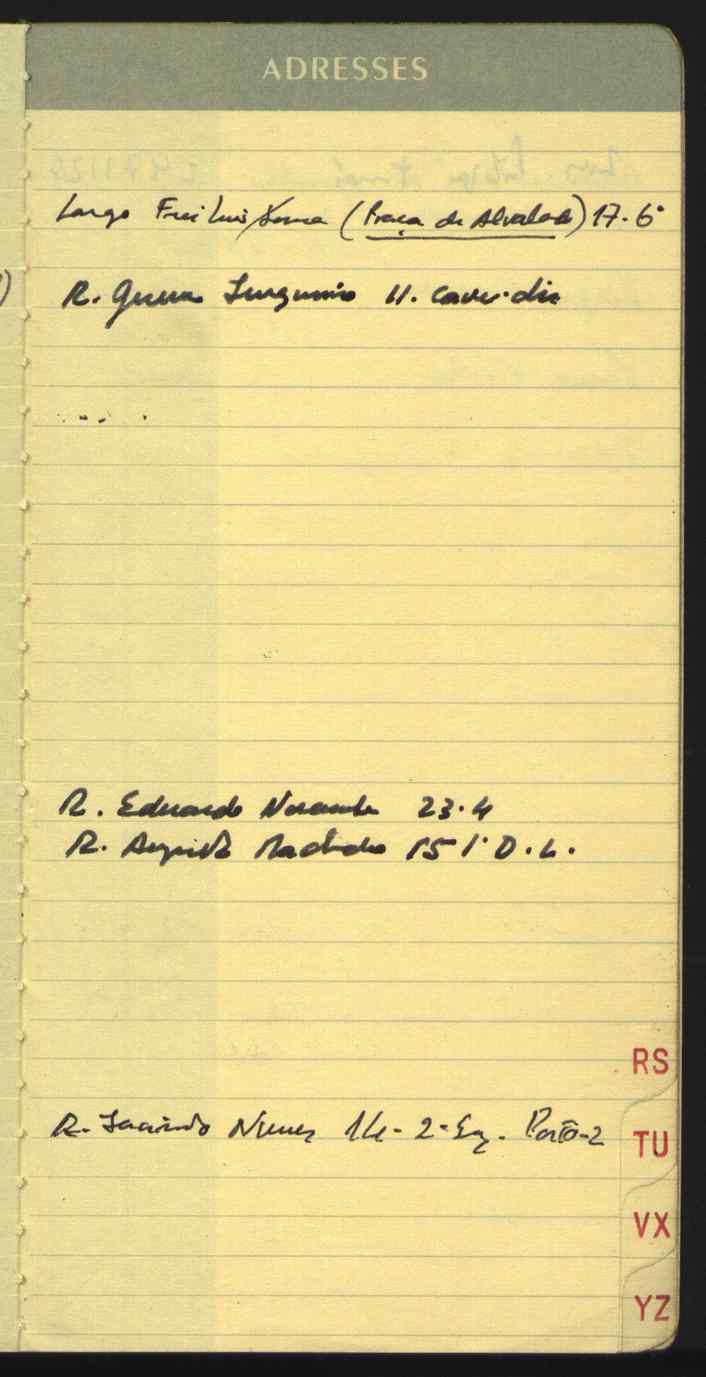 ADRESSES
Largo Frei Luis Sousa (Praça de Alvalade) 17-6º
R. Guerra Junqueiro 11. cave-dir
R. Eduardo Noronha 23-4
R. Augusto Machado 15 1º D. L.
R. Jacinto Nunes 14-2º Esq. Porto-2
RS
TU
VX
YZ